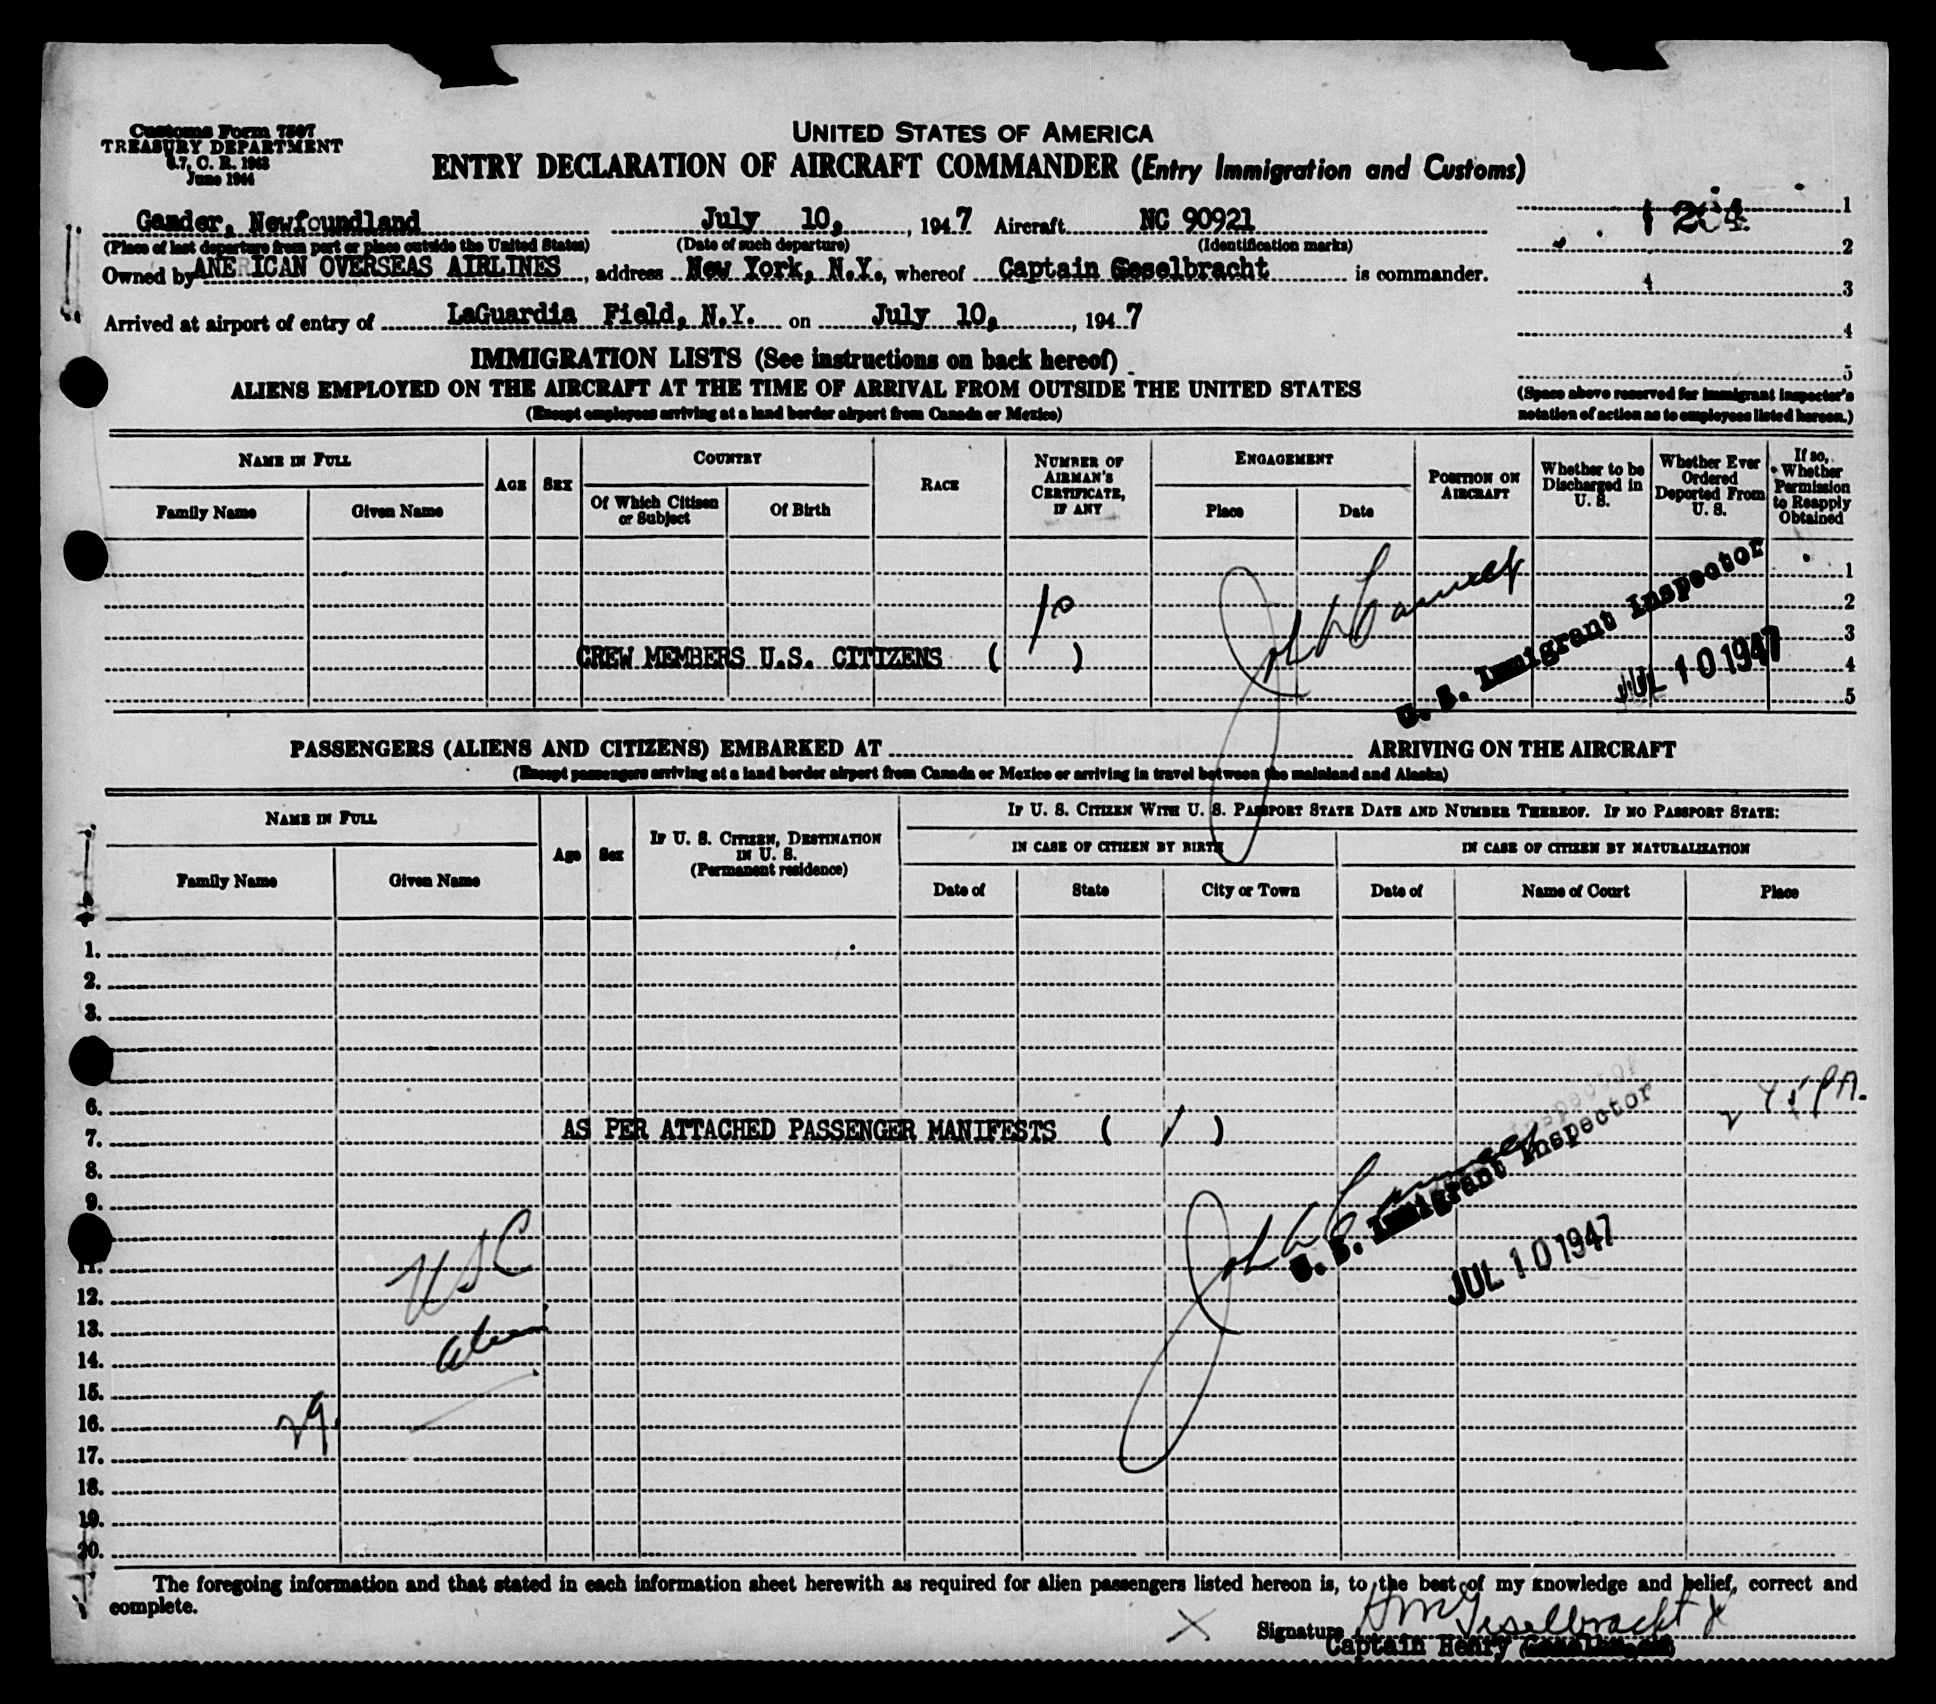 Customs Form 7507
TREASURY DEPARTMENT
6.7, C. R. 1943
June 1944
UNITED STATES OF AMERICA
ENTRY DECLARATION OF AIRCRAFT COMMANDER (Entry Immigration and Customs)
Gander, Newfoundland July 10, , 1947 Aircraft NC 90921
(Place of last departure from port or place outside the United States) (Date of such departure) (Identification marks)
Owned by AMERICAN OVERSEAS AIRLINES , address New York, N.Y., whereof Captain Geselbracht is commander.
Arrived at airport of entry of LaGuardia Field, N.Y. on July 10, , 1947
1
2
3
4
5
(Space above reserved for immigrant inspector's
notation of action as to employees listed hereon.)
IMMIGRATION LISTS (See instructions on back hereof)
ALIENS EMPLOYED ON THE AIRCRAFT AT THE TIME OF ARRIVAL FROM OUTSIDE THE UNITED STATES
(Except employees arriving at a land border airport from Canada or Mexico)
NAME IN FULL
Family Name
Given Name
AGE
SEX
COUNTRY
Of Which Citizen or Subject
Of Birth
RACE
NUMBER OF AIRMAN'S CERTIFICATE, IF ANY
ENGAGEMENT
Place
Date
POSITION ON AIRCRAFT
Whether to be Discharged in U. S.
Whether Ever Ordered Deported From U. S.
If so, Whether Permission to Reapply Obtained
1
2
3
4
5
CREW MEMBERS U.S. CITIZENS ( 10 )
U. S. Immigrant Inspector
JUL 10 1947
PASSENGERS (ALIENS AND CITIZENS) EMBARKED AT ARRIVING ON THE AIRCRAFT
(Except passengers arriving at a land border airport from Canada or Mexico or arriving in travel between the mainland and Alaska)
NAME IN FULL
Family Name
Given Name
Age
Sex
IF U. S. CITIZEN, DESTINATION IN U. S.
(Permanent residence)
IF U. S. CITIZEN WITH U. S. PASSPORT STATE DATE AND NUMBER THEREOF. IF NO PASSPORT STATE:
IN CASE OF CITIZEN BY BIRTH
IN CASE OF CITIZEN BY NATURALIZATION
Date of
State
City or Town
Date of
Name of Court
Place
1.
2.
3.
6.
7. AS PER ATTACHED PASSENGER MANIFESTS ( )
8.
9.
11.
12.
13.
14.
15.
16.
17.
18.
19.
20.
USC
alien
29
U. S. Immigrant Inspector
JUL 10 1947
The foregoing information and that stated in each information sheet herewith as required for alien passengers listed hereon is, to the best of my knowledge and belief, correct and
complete.
Signature HM Geselbracht
Captain Henry Geselbracht